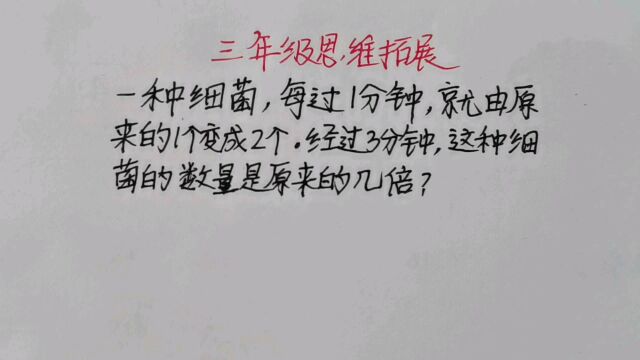 三年级思维拓展
一种细菌，每过1分钟，就由原
来的1个变成2个。经过3分钟，这种细
菌的数量是原来的几倍？